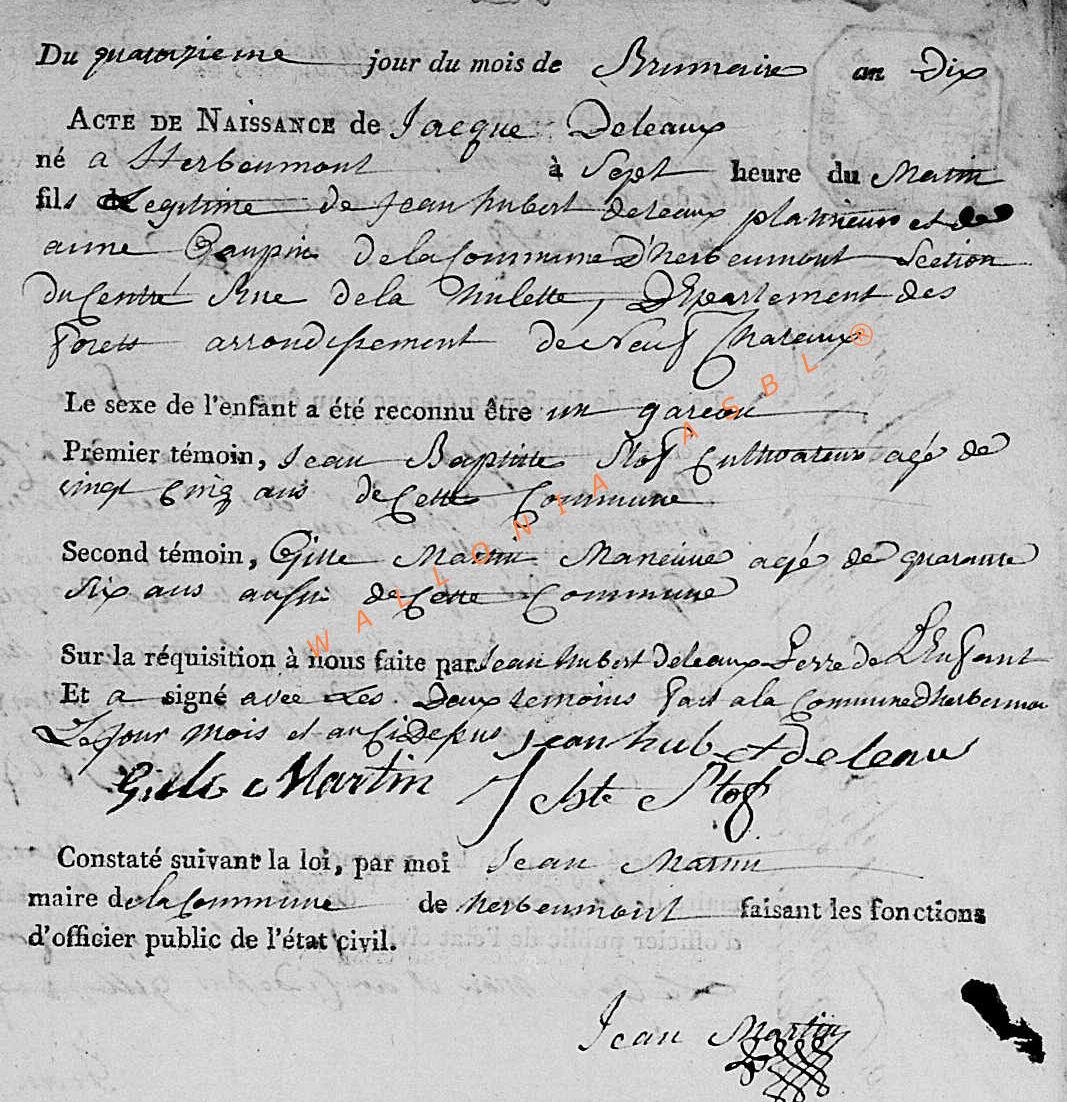 Du quatorzieme jour du mois de Brumaire an Dix
ACTE DE NAISSANCE de Jacque Deleaux
né a Herbeumont à Sept heure du Matin
fils Legitime de Jean hubert deleaux platineur et de
anne Gaupin de la Commune d'herbeumont Section
du Centre Rue de la hulette, Departement des
forets arrondissement de Neuf Chateaux
Le sexe de l'enfant a été reconnu être un garcon
Premier témoin, Jean Baptiste Slof Cultivateur agé de
vingt Cinq ans de Cette Commune
Second témoin, Gille Martin Maneuve agé de quarante
Six ans aussi de Cette Commune
Sur la réquisition à nous faite par Jean hubert deleaux Perre de L'Enfant
Et a signé avec Les Deux temoins fait a la Commune d'herbeumon
Le Jour mois et an Ci Depus Jean hubert deleau
Gille Martin J bte Slof
Constaté suivant la loi, par moi Jean Martin
maire de la Commune de herbeumont faisant les fonctions
d'officier public de l'état civil.
Jean Martin
WALLONIA ASBL ®